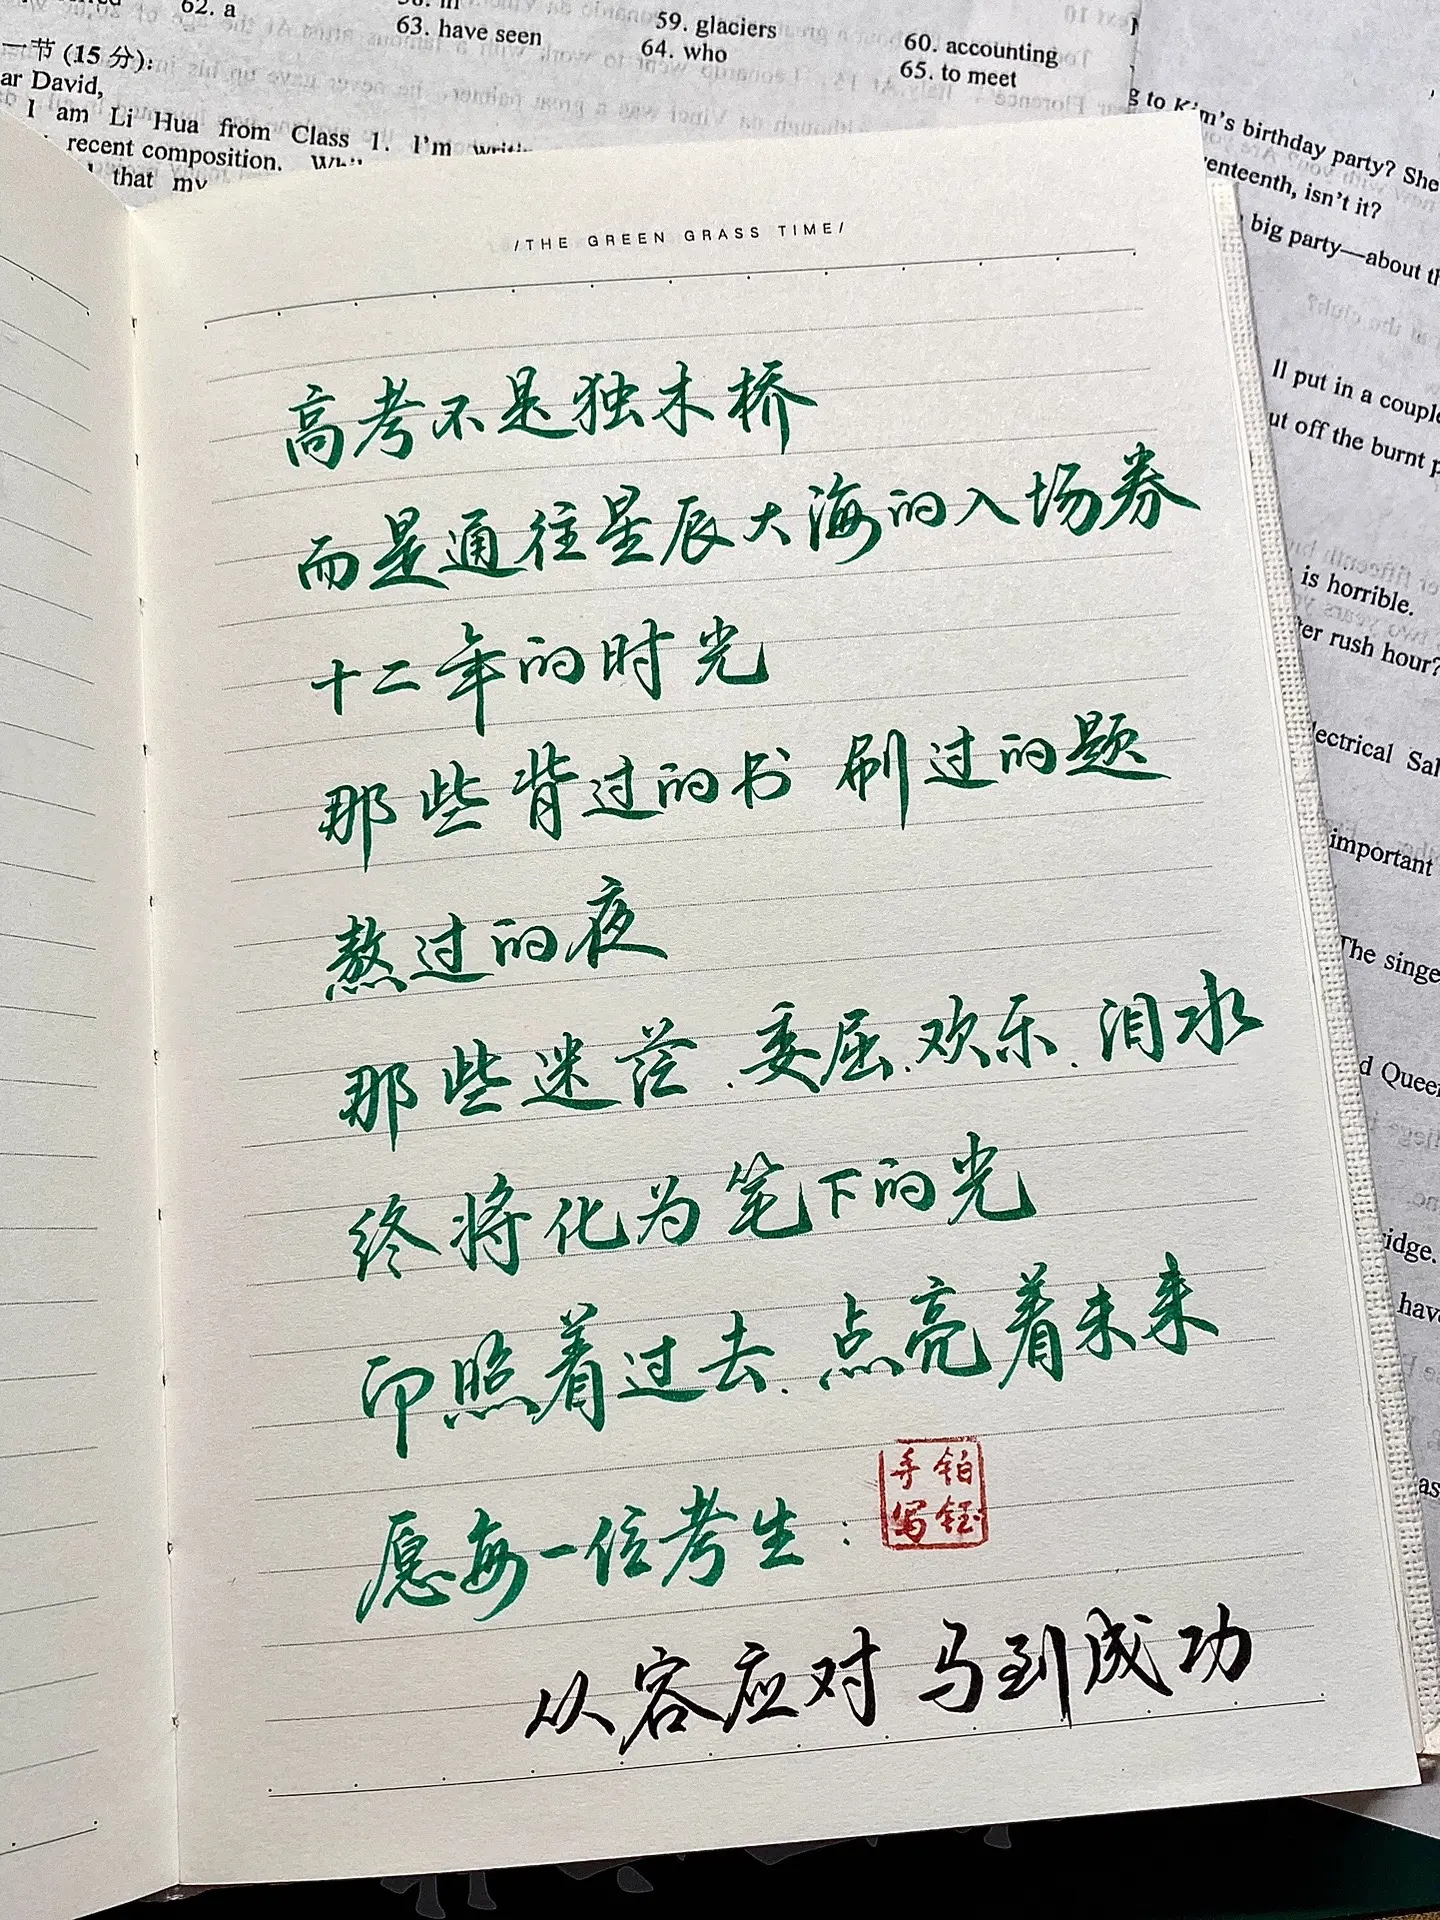 62. a
63. have seen
59. glaciers
64. who
60. accounting
65. to meet
一节 (15 分):
ar David,
I am Li Hua from Class 1. I'm
recent composition.
that my
g to Kim's birthday party? She
enteenth, isn't it?
big party—about
ll put in a couple
ut off the burnt
is horrible.
ter rush hour?
lectrical
important
The
d
ridge.
hav
as
/THE GREEN GRASS TIME/
高考不是独木桥
而是通往星辰大海的入场券
十二年的时光
那些背过的书 刷过的题
熬过的夜
那些迷茫、委屈、欢乐、泪水
终将化为笔下的光
印照着过去、点亮着未来
愿每一位考生:
铂钰
手写
从容应对 马到成功